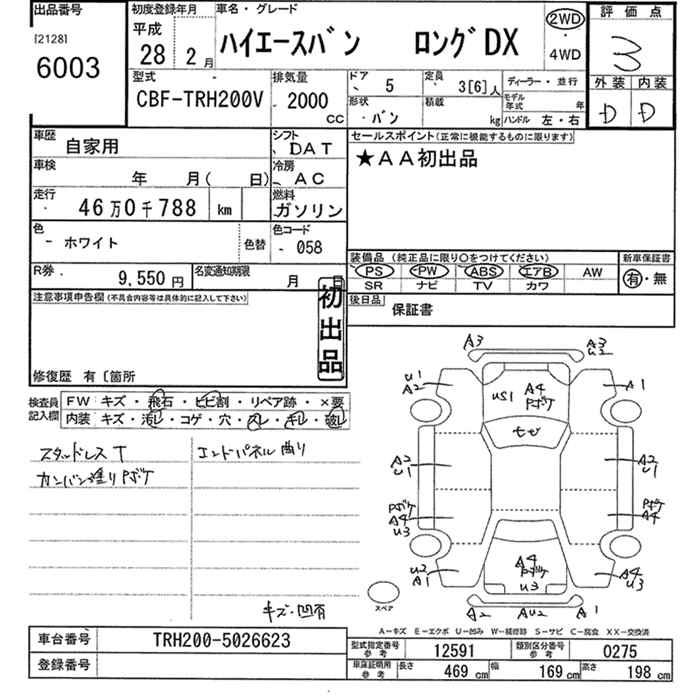 出品番号
[2128]
6003
初度登録年月
平成
28 2 月
車名・グレード
ハイエースバン ロングDX
2WD
・
4WD
評価点
3
外装 内装
D D
型式
CBF-TRH200V
排気量
2000
cc
ドア
5
定員
3[6]人
形状
バン
積載
kg
ディーラー・並行
モデル年式 年
ハンドル 左・右
車歴
自家用
シフト
DAT
車検
年 月( 日)
冷房
AC
走行
46万0千788 km
燃料
ガソリン
色
ホワイト
色替
色コード
058
R券
9,550円
名変通知期限
月 日
セールスポイント(正常に機能するものに限ります)
★AA初出品
装備品(純正品に限り○をつけてください)
PS PW ABS エアB AW
SR ナビ TV カワ
新車保証書
有・無
後日品
保証書
注意事項申告欄(不具合内容等は具体的に記入して下さい)
初出品
修復歴 有〔箇所
検査員記入欄
FW キズ・飛石・ヒビ割・リペア跡・×要
内装 キズ・汚レ・コゲ・穴・スレ・キレ・破レ
スタッドレス T
カンバン塗りPボケ
エンドパネル曲り
キズ・凹有
A3
A3
U2
U1
A2
US1
A4
Pボケ
A1
ヒビ
A2
U1
A2
U1
Pボケ
A4
U3
Pボケ
A4
U2
A1
A4
Pボケ
U3
A4
U3
スペア
A2 AU2 A1
A-キズ E-エクボ U-凹み W-補修跡 S-サビ C-腐食 XX-交換済
車台番号
TRH200-5026623
登録番号
型式指定番号
参考
12591
類別区分番号
参考
0275
車庫証明用
参考
長さ
469 cm
幅
169 cm
高さ
198 cm